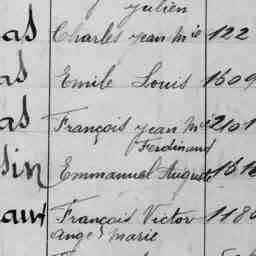 Julien
as Charles Jean Mie 122
as Emile Louis 1609
as François Jean Mie 2101
Ferdinand
sin Emmanuel Auguste 161
François Victor 118
Ange Marie